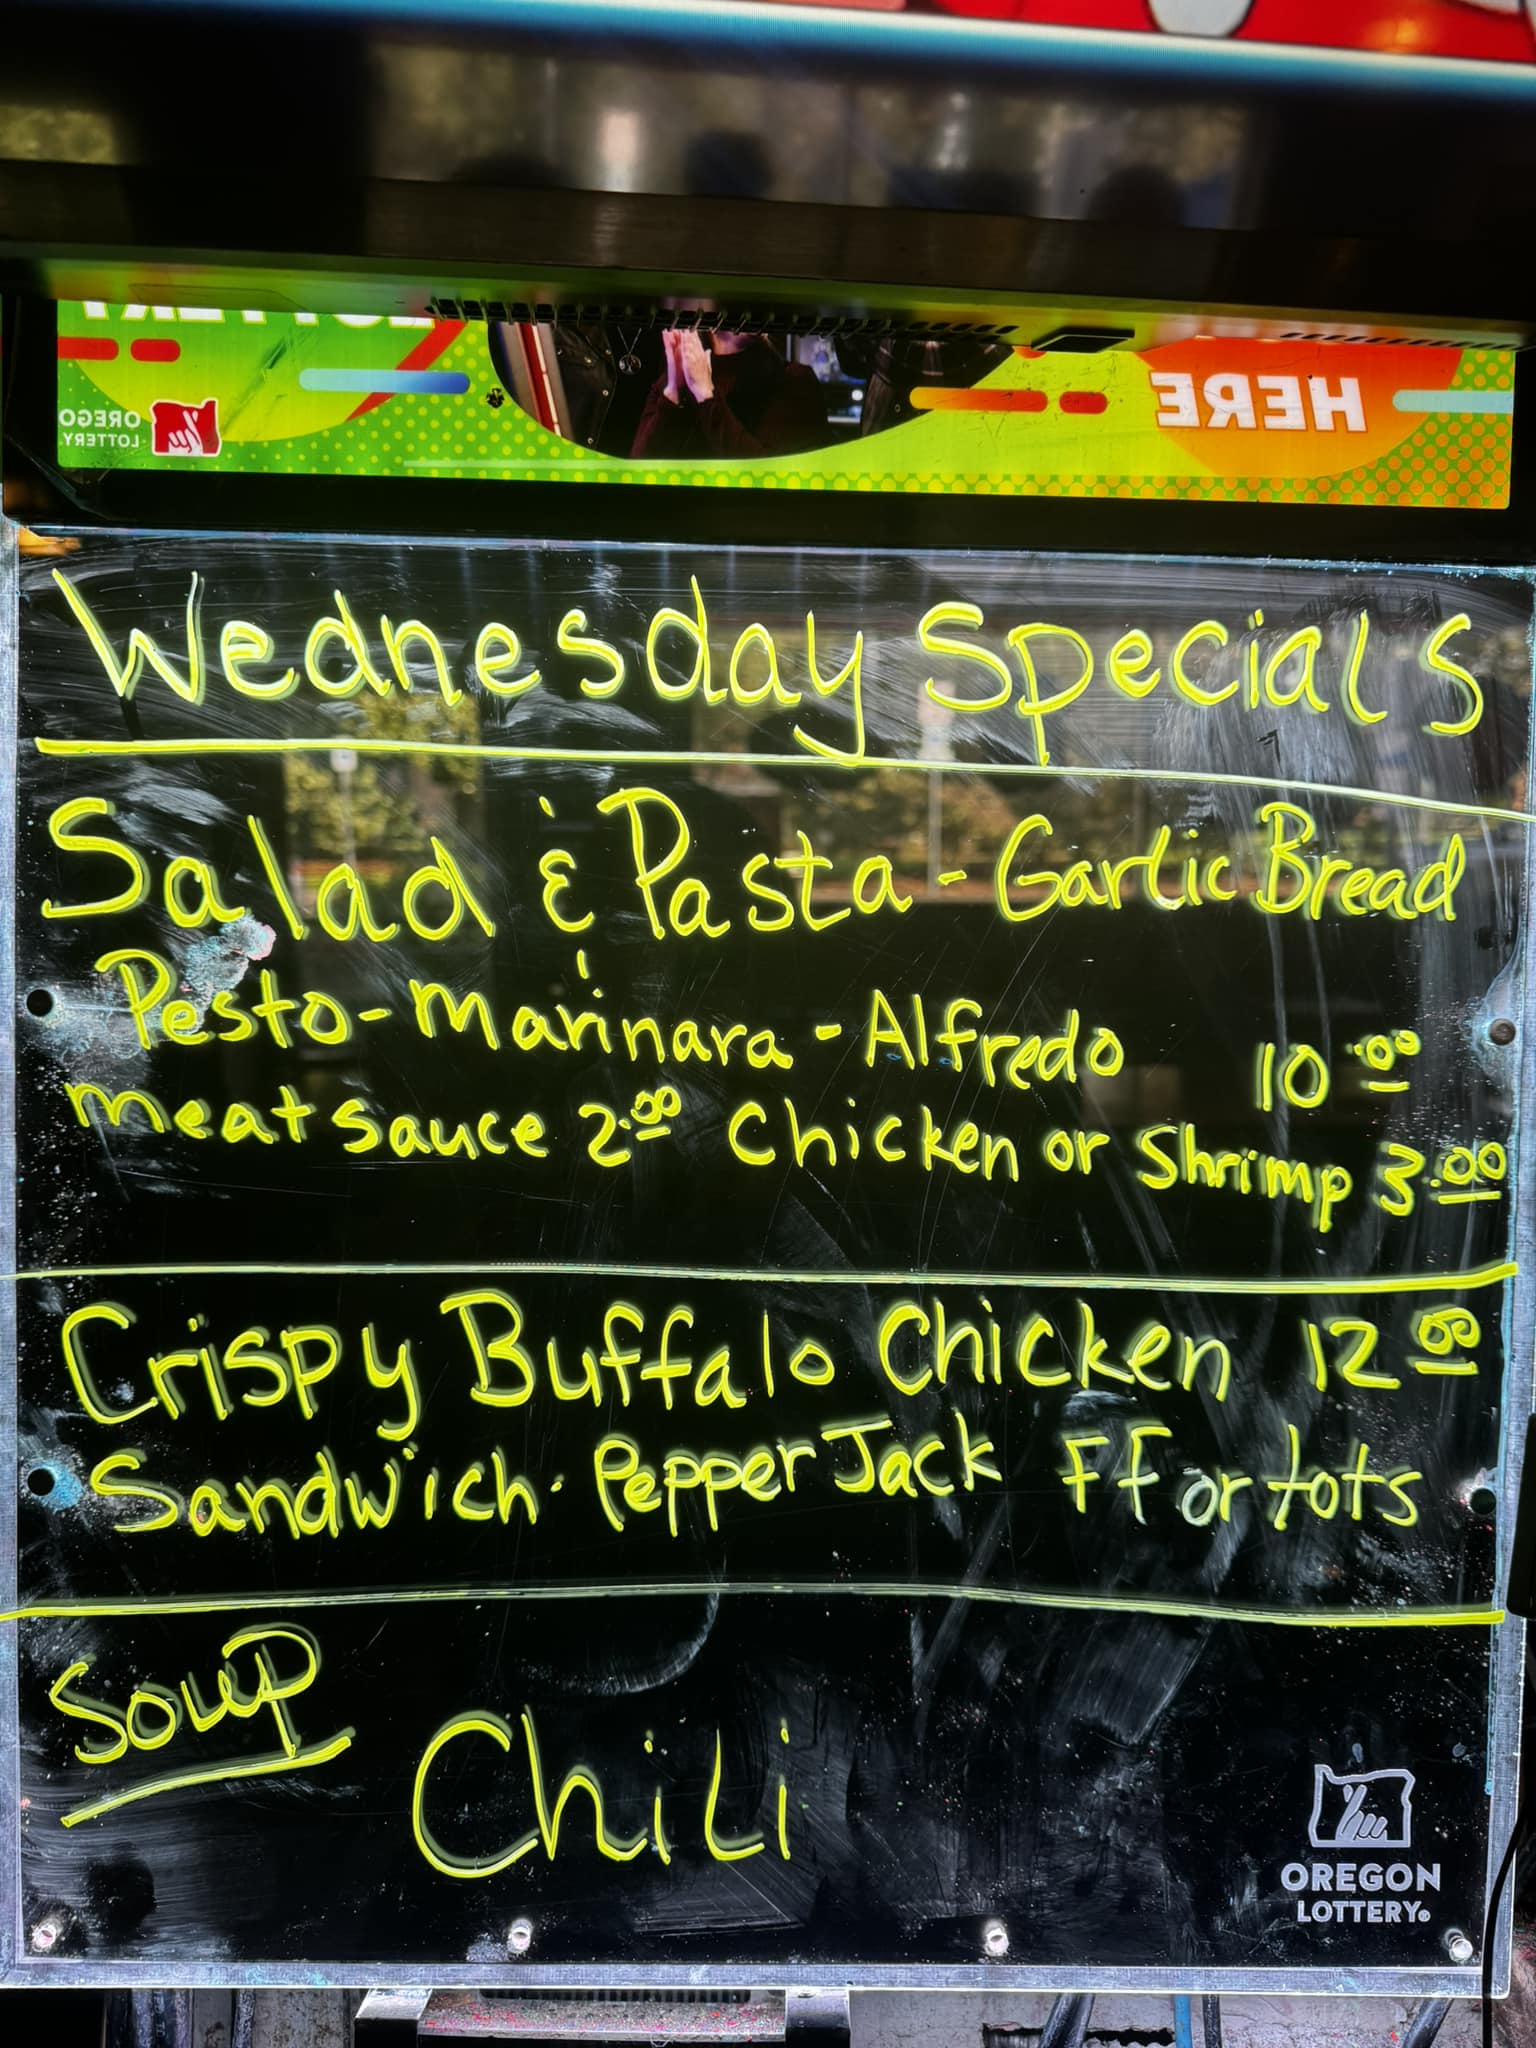 HERE
OREGO
LOTTERY
Wednesday Specials
Salad & Pasta - Garlic Bread
Pesto - Marinara - Alfredo 10.00
meat sauce 2.00 Chicken or Shrimp 3.00
Crispy Buffalo Chicken 12 00
Sandwich. Pepper Jack FF or tots
Soup
Chili
OREGON
LOTTERY®